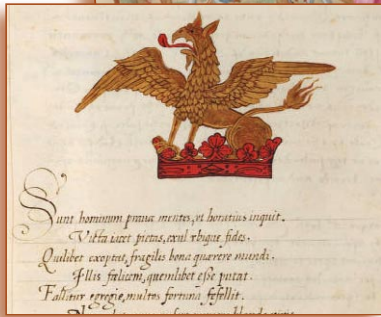 Sunt hominum praua mentes, et horatius inquit.
Victa iacet pietas, exul vbique fides.
Quilibet exoptat, fragilis bona quærere mundi.
Illis fœlicem, quemlibet esse putat.
Fallitur egregie, multos fortuna fefellit.